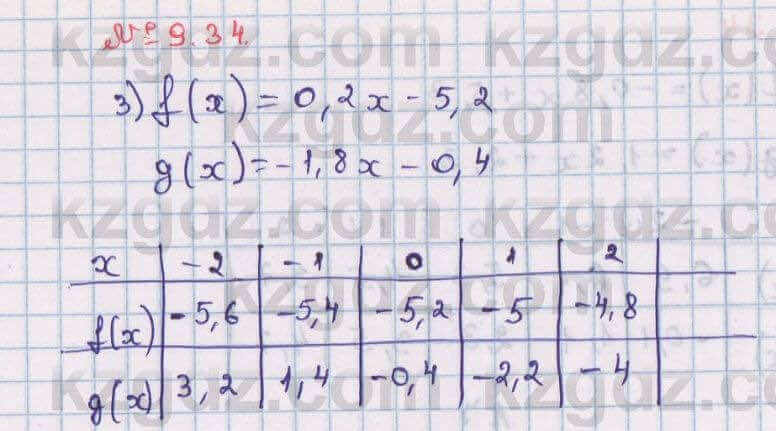 № 9.34.
3) f(x) = 0,2x - 5,2
g(x) = -1,8x - 0,4
x | -2 | -1 | 0 | 1 | 2 |
f(x) | -5,6 | -5,4 | -5,2 | -5 | -4,8 |
g(x) | 3,2 | 1,4 | -0,4 | -2,2 | -4 |
kzgdz.com
kzgdz.com
kzgdz.com
kzgdz.com
kzgdz.com